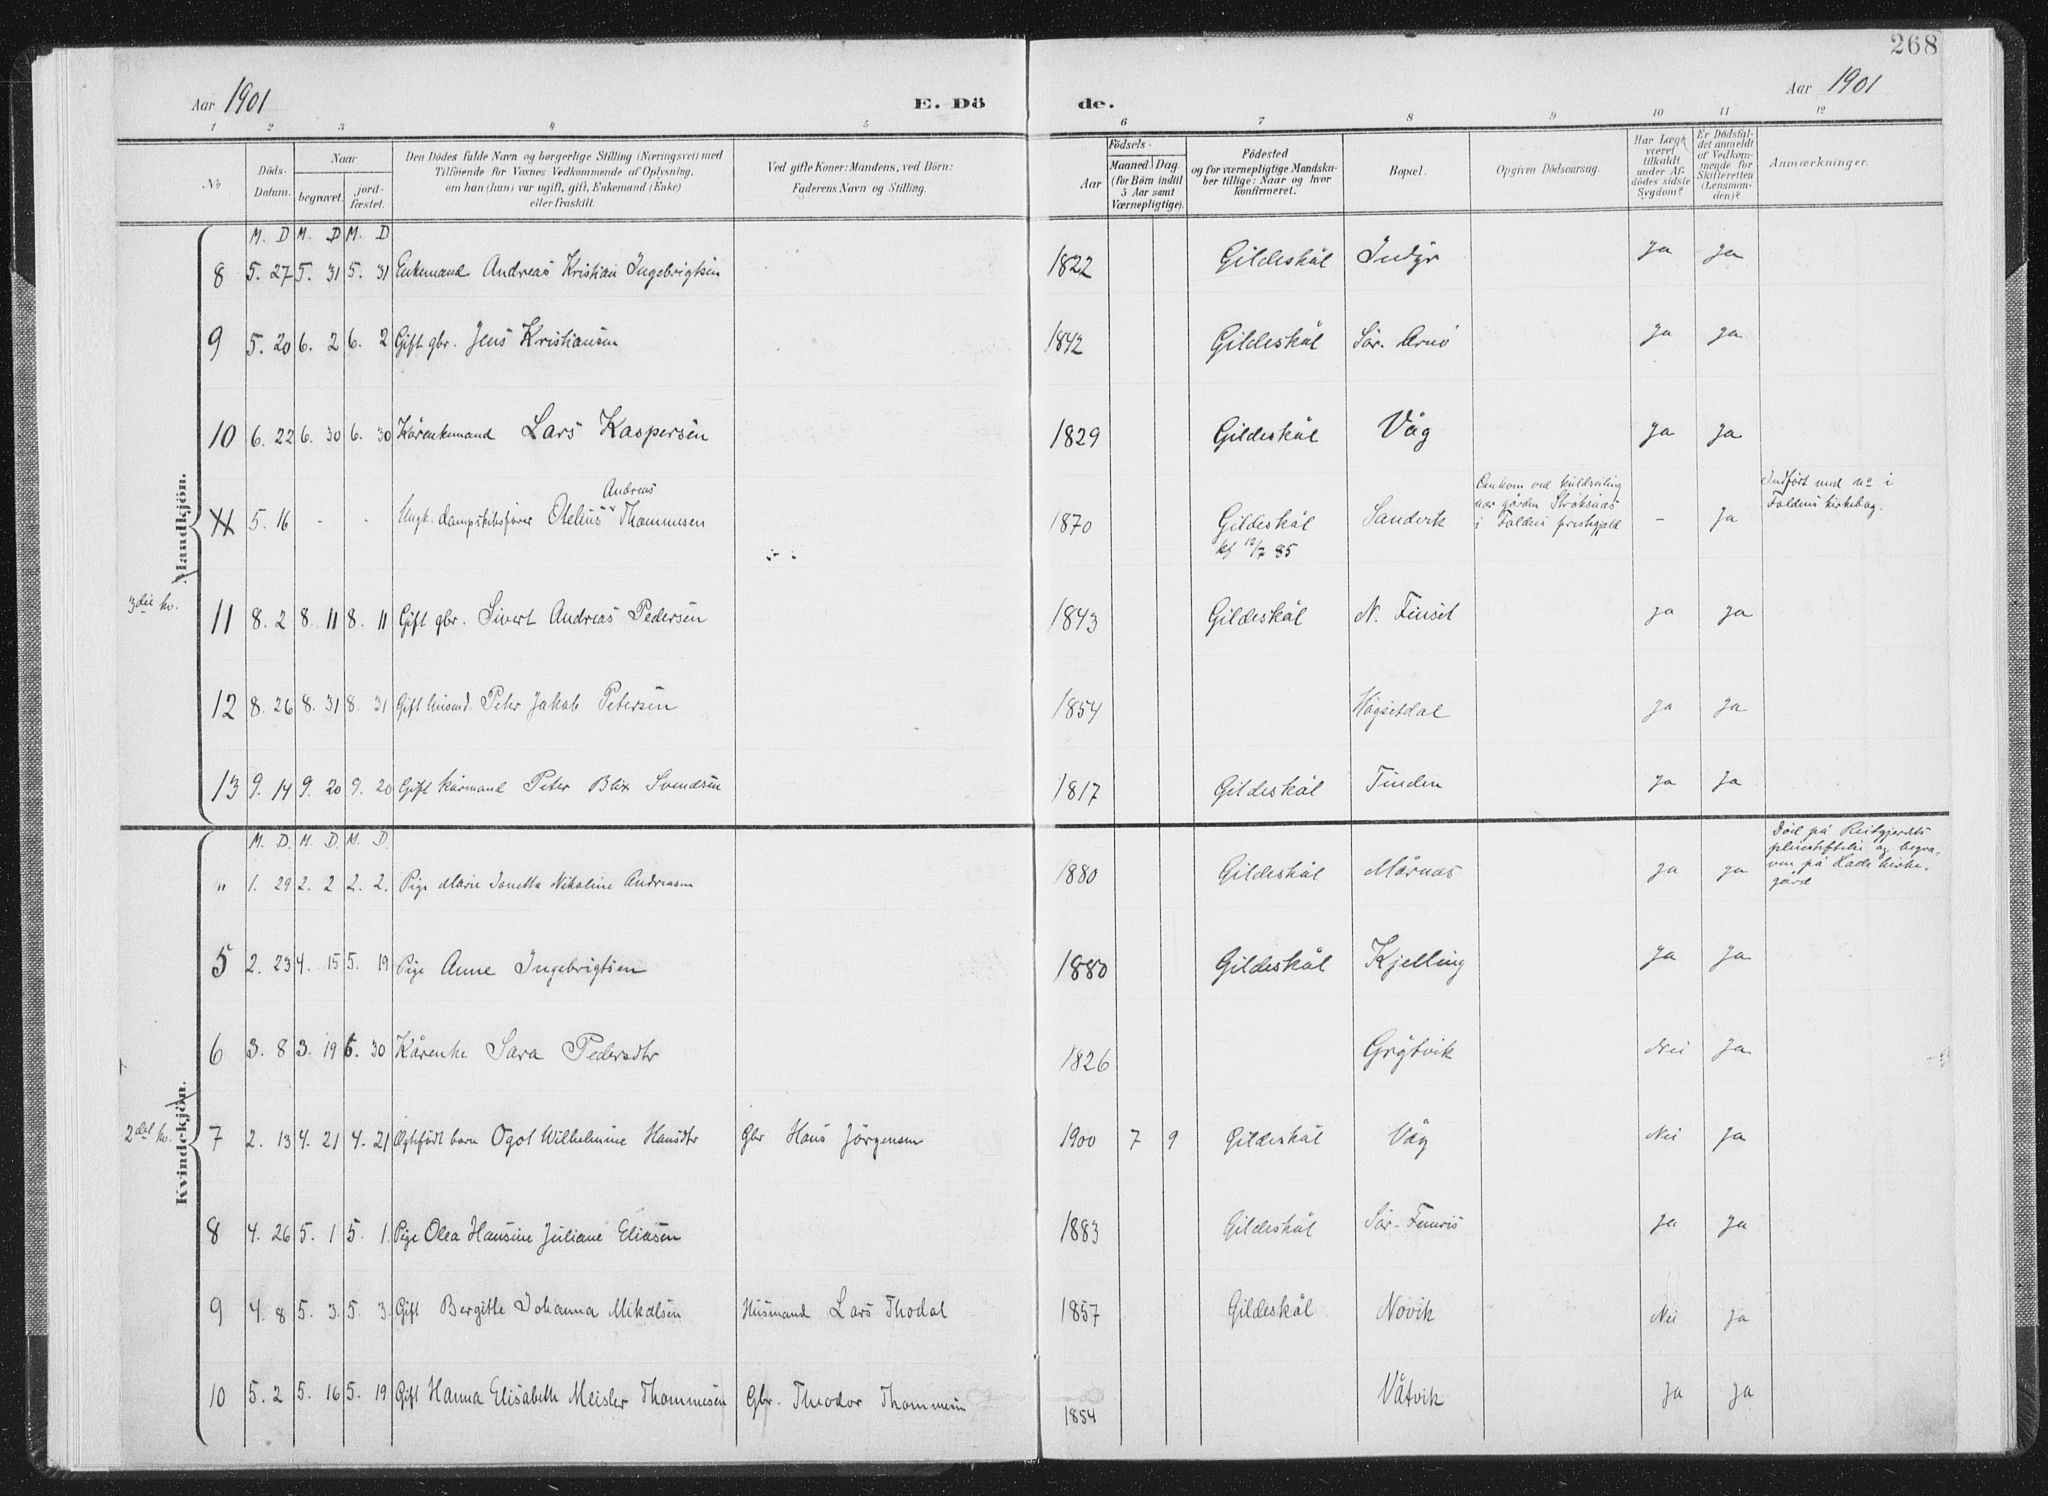 268
Aar 1901 E. Dö de. Aar 1901
1 2 3 4 5 6 7 8 9 10 11 12
No
Döds-Datum.
Naar
begravet.
jord-fæstet.
Den Dödes fulde Navn og borgerlige Stilling (Næringsvei) med
Tilföiende for Voxnes Vedkommende af Oplysning,
om han (hun) var ugift, gift, Enkemand (Enke)
eller fraskilt.
Ved gifte Koner: Mandens, ved Börn:
Faderens Navn og Stilling.
Födsels-
Aar
Maaned Dag
(for Börn indtil
5 Aar samt
Værnepligtige).
Födested
og for værnepligtige Mandska-
ber tillige: Naar og hvor
konfirmeret.
Bopæl.
Opgiven Dödsaarsag.
Har Læge
været
tilkaldt
under Af-
dödes sidste
Sygdom?
Er Dödsfal-
det anmeldt
af Vedkom-
mende for
Skifteretten
(Lensman-
den)?
Anmærkninger.
Mandkjön.
M. D M. D M. D
8 5. 27 5. 31 5. 31 Enkemand Andreas Kristian Ingebrigtsen 1822 Gildeskål Indyr Ja Ja
9 5. 20 6. 2 6. 2 Gift gbr. Jens Kristiansen 1842 Gildeskål Sör. Arnö Ja Ja
10 6. 22 6. 30 6. 30 Kårenkemand Lars Kaspersen 1829 Gildeskål Våg Ja Ja
Andreas
5. 16 - - Ungk. dampskibsförer Otelius Thommesen 1870 Gildeskål Sandvik
kf 12/7 85
Omkom ved kuldseiling
nær gården Ströksnæs
i Foldens prestegjeld
- Ja
Indfört med no i
Foldens kirkebog.
3die kv.
11 8. 2 8. 11 8. 11 Gift gbr. Sivert Andreas Pedersen 1843 Gildeskål N. Finset ja ja
12 8. 26 8. 31 8. 31 Gift husmd. Peter Jakob Petersen 1854 Högsetdal ja ja
13 9. 14 9. 20 9. 20 Gift kårmand Peter Blix Svendsen 1817 Gildeskål Finden ja Ja
Kvindekjön.
M. D. M. D. M. D.
" 1. 29 2. 2 2. 2. Pige Marie Jonetta Nikoline Andreasen 1880 Gildeskål Mårnæs ja ja
Död på Reitgjerdets
pleiestiftelse og begra-
ven på Lade kirke-
gård
5 2. 23 4. 15 5. 19 Pige Anne Ingebrigtsen 1880 Gildeskål Kjelling Ja Ja
6 3. 8 3. 19 6. 30 Kårenke Sara Pedersdtr 1826 Grytvik Nei Ja
2det kv.
7 2. 13 4. 21 4. 21 Ægtefödt barn Ogot Wilhelmine Hansdtr Gbr Hans Jörgensen 1900 7 9 Gildeskål Våg Nei Ja
8 4. 26 5. 1 5. 1. Pige Olea Hansine Juliane Eliasen 1883 Gildeskål Sör-Finnis ja ja
9 4. 8 5. 3. 5. 3. Gift Bergitte Johanna Mikalsen Husmand Lars Thodal 1857 Gildeskål Novik Nei Ja
10 5. 2 5. 16 5. 19 Gift Hanna Elisabeth Meisler Thommesen Gbr. Theodor Thommesen 1854 Våtvik Ja Ja